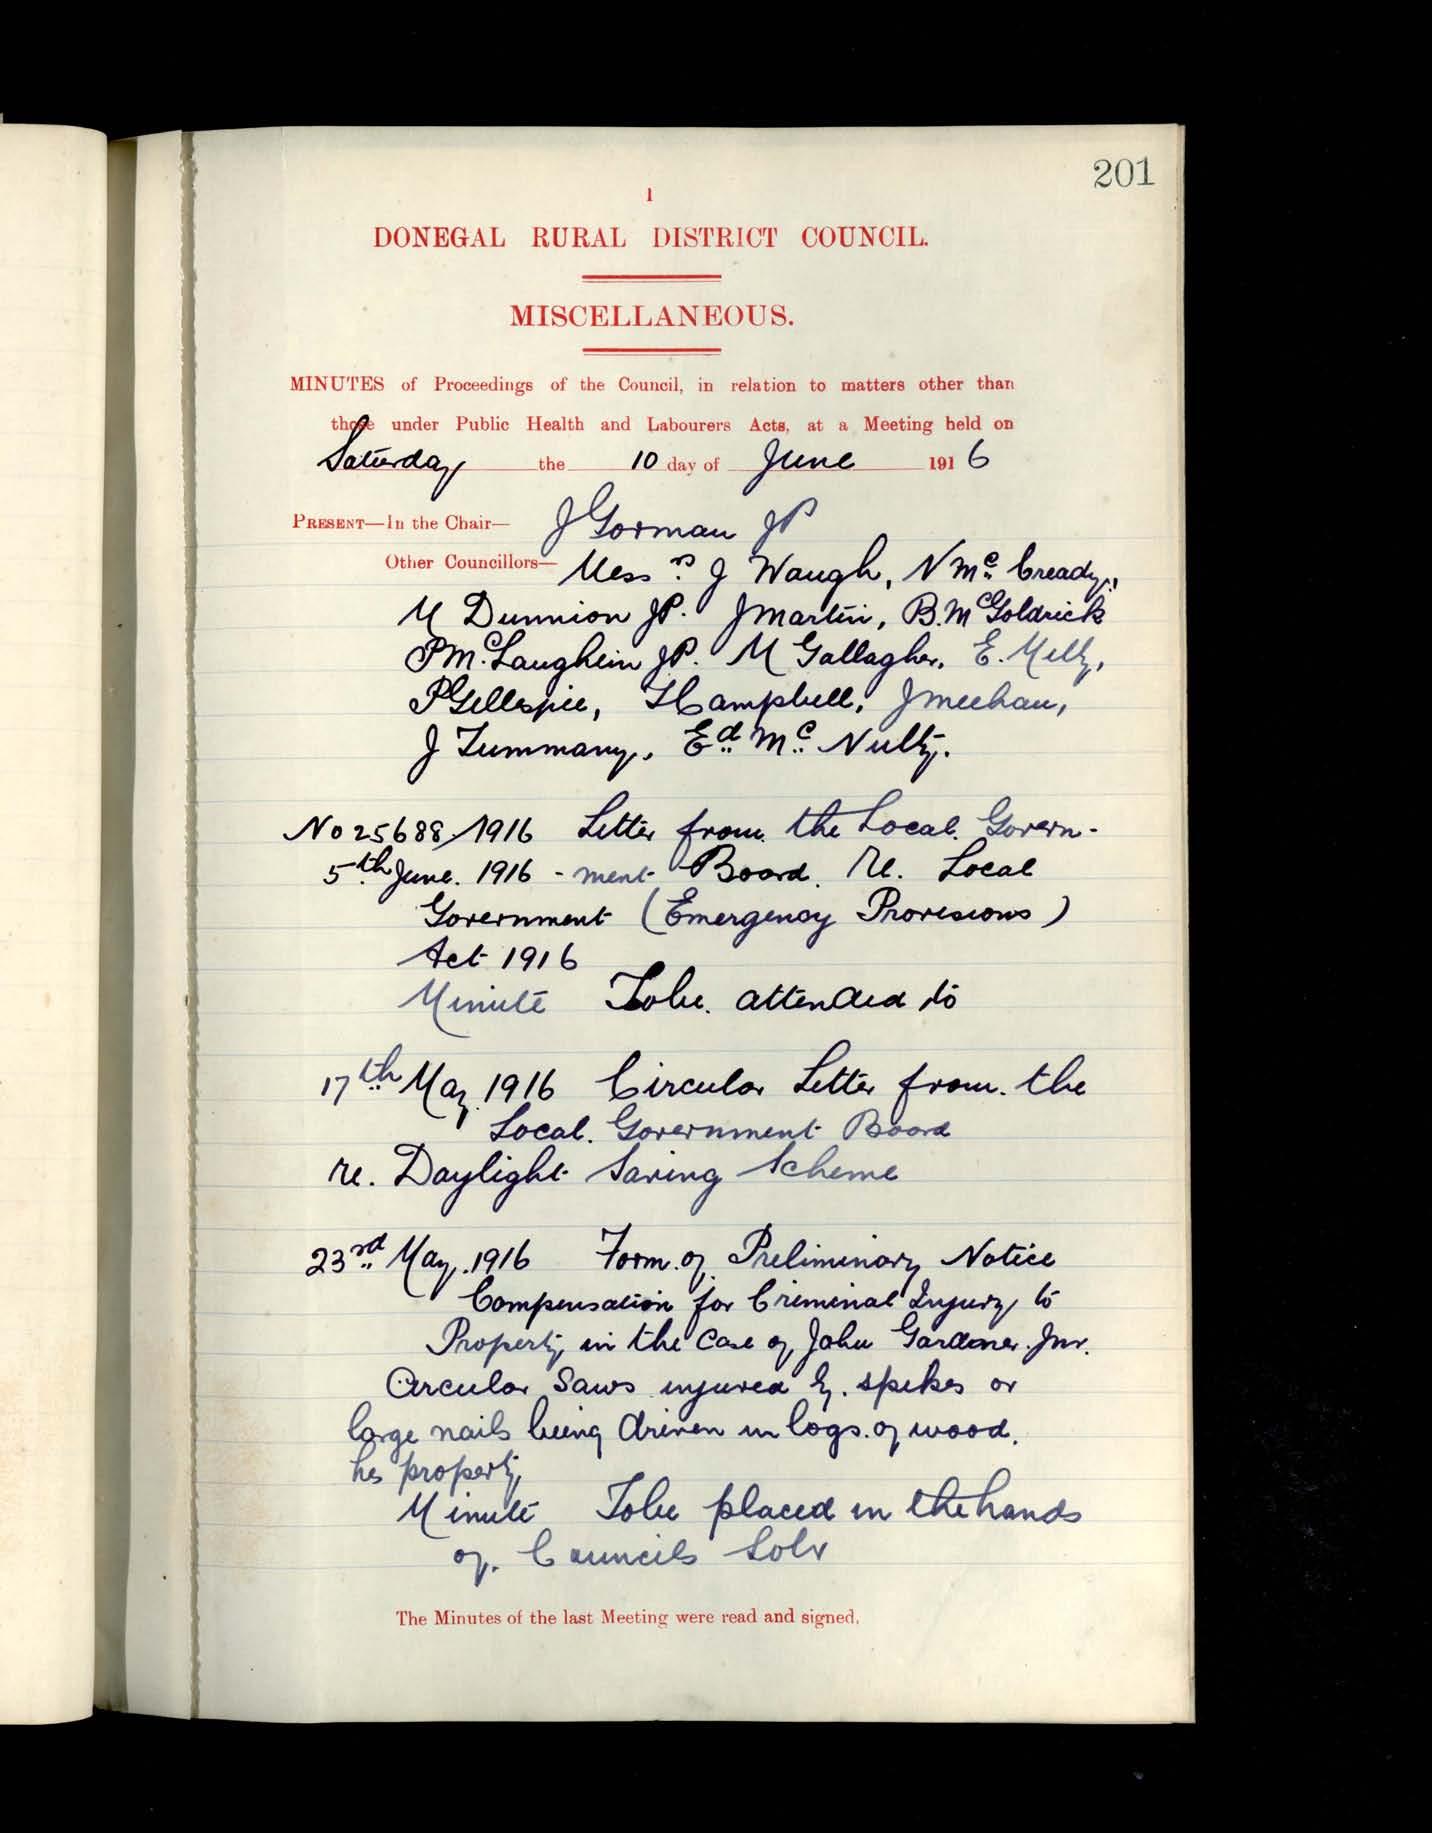 201
1
DONEGAL RURAL DISTRICT COUNCIL.
MISCELLANEOUS.
MINUTES of Proceedings of the Council, in relation to matters other than
those under Public Health and Labourers Acts, at a Meeting held on
Saturday the 10 day of June 1916
PRESENT—In the Chair— J Gorman JP
Other Councillors— Messrs J Waugh, N Mc Cready,
M Dunnion JP. J Martin, B. McGoldrick
P McLaughlin JP. M Gallagher, E. Melly,
P Gillespie, H Campbell, J Meehan,
J Timmany, Ed Mc Nulty.
No 25688/1916 Letter from the Local Govern-
5th June. 1916 - ment Board. Re. Local
Government (Emergency Provisions)
Act 1916
Minute To be attended to
17th May 1916 Circular Letter from the
Local Government Board
re. Daylight Saving Scheme
23rd May. 1916 Form of Preliminary Notice
Compensation for Criminal Injury to
Property in the case of John Gardiner Jnr.
Circular Saws injured by spikes or
large nails being driven in logs of wood.
his property
Minute To be placed in the hands
of Councils Solr
The Minutes of the last Meeting were read and signed.